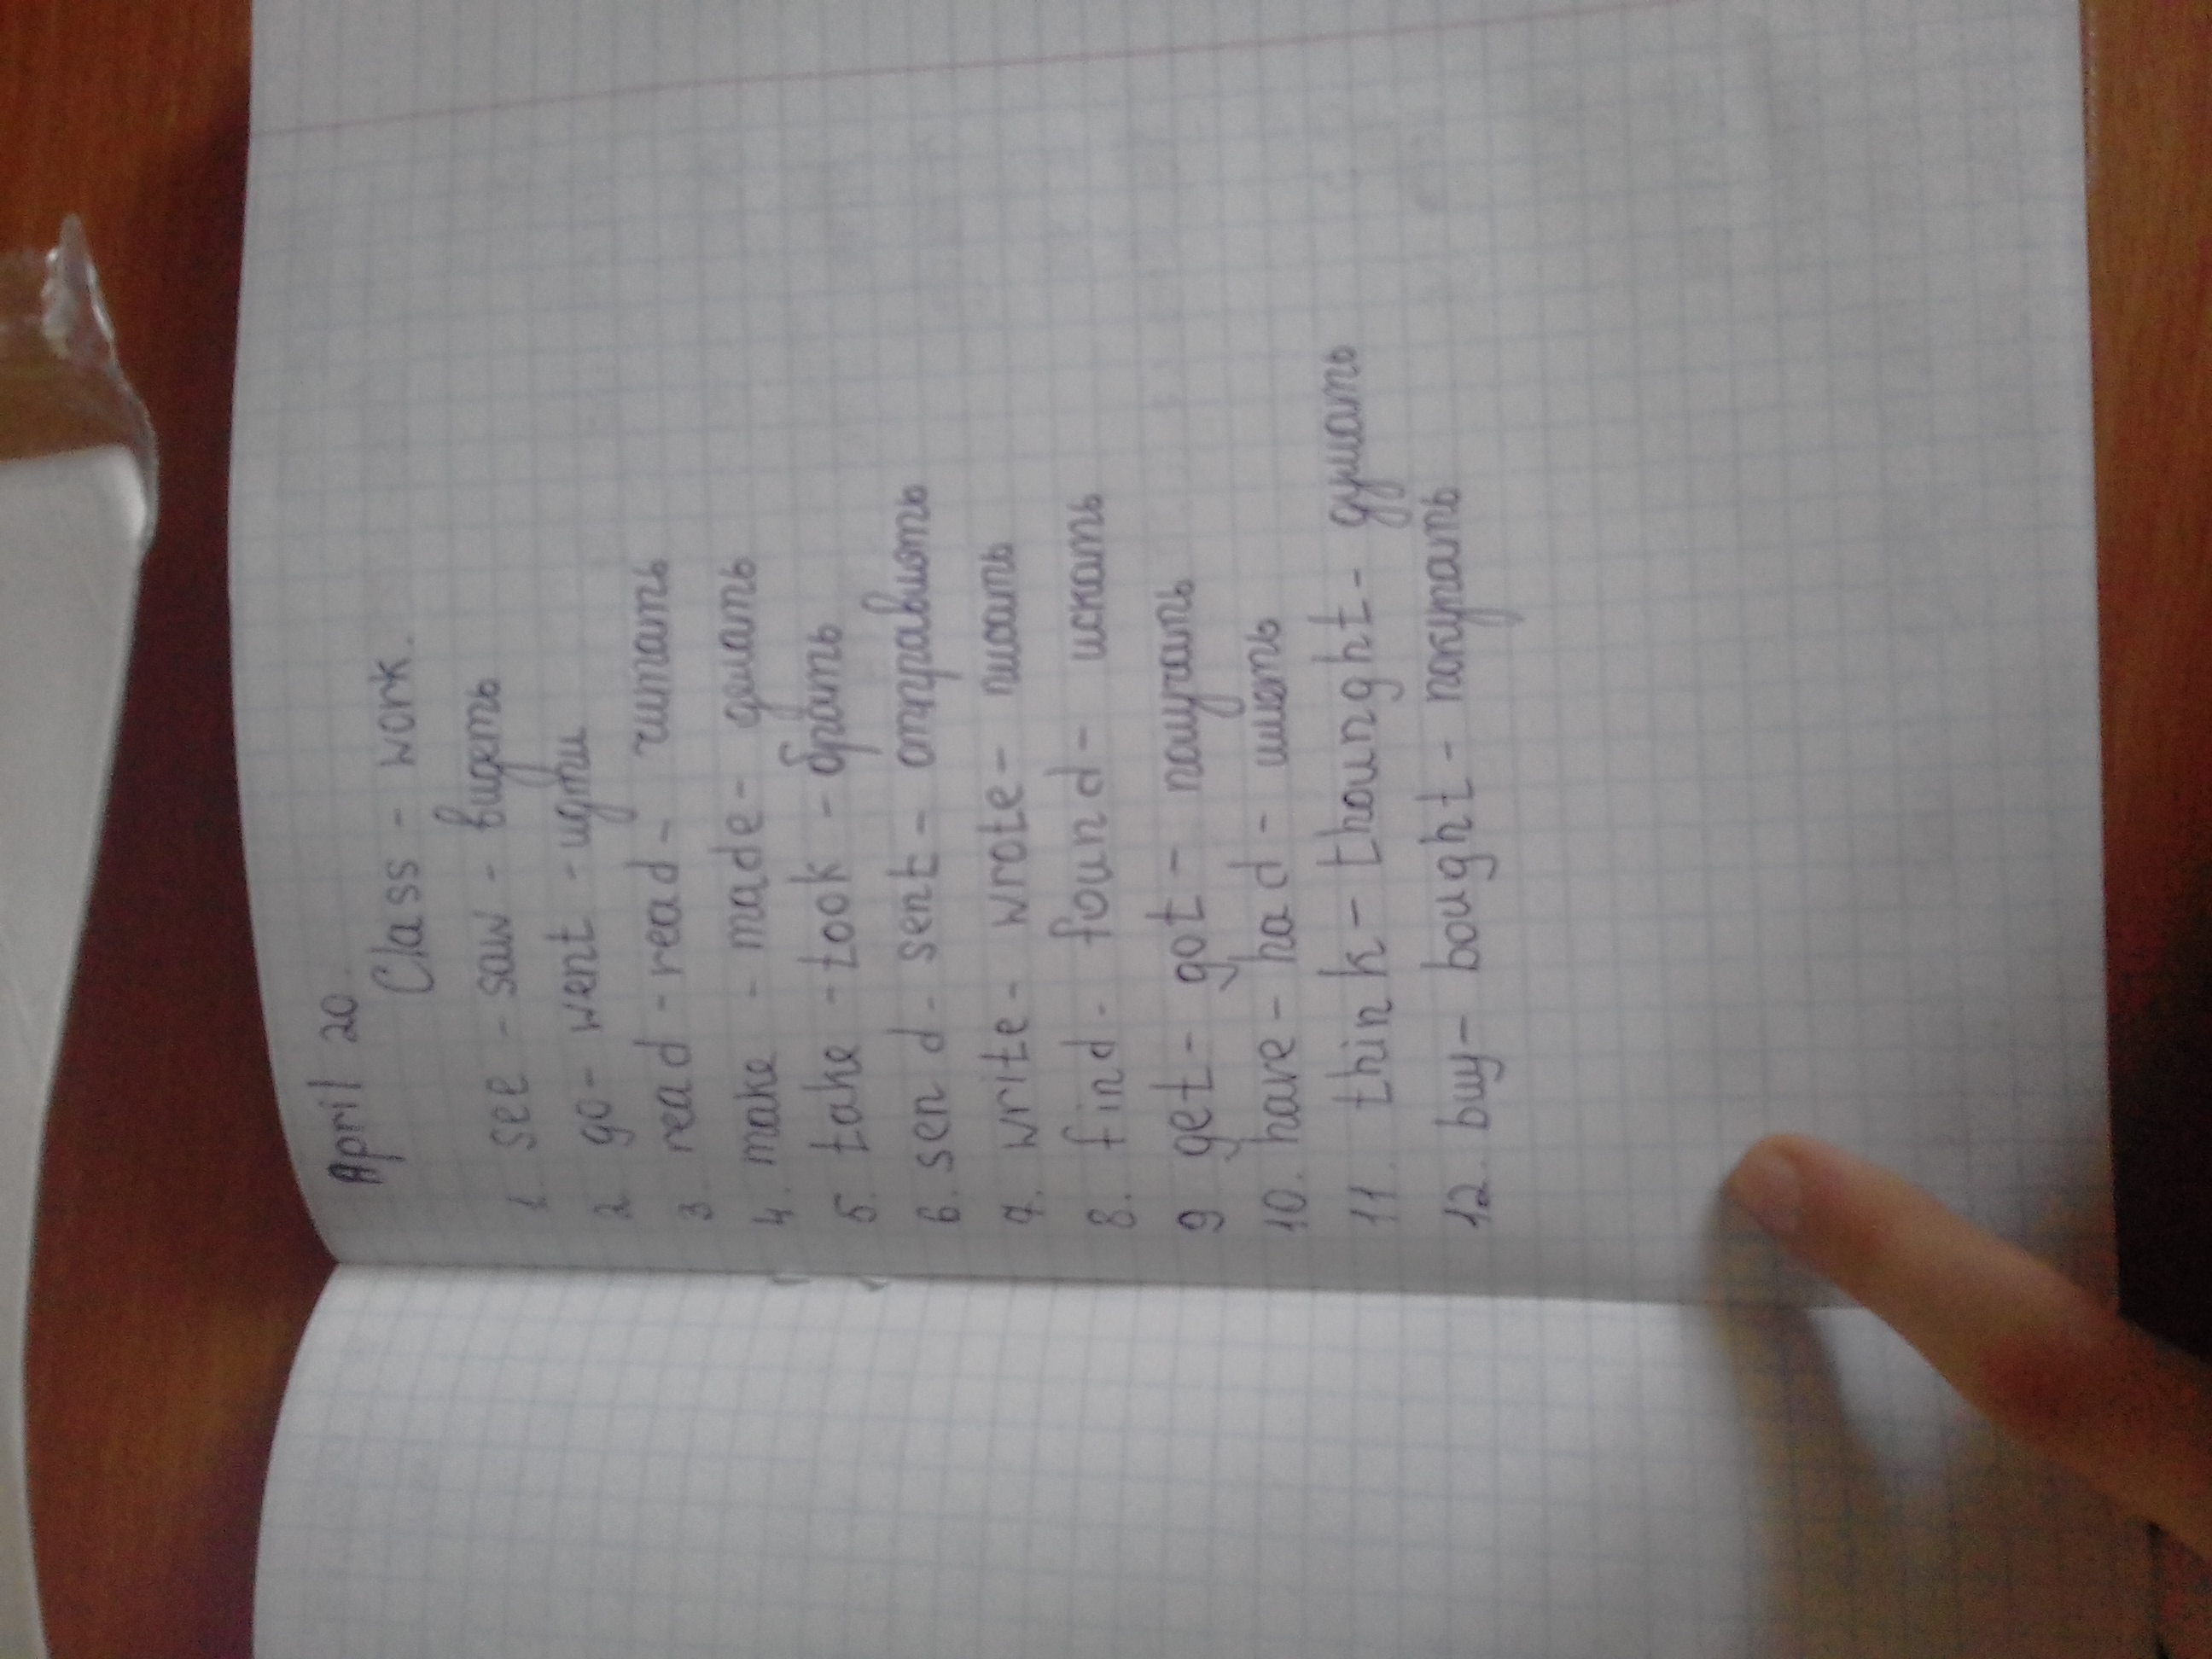 April 20.
Class - work.
1. see - saw - видеть
2. go - went - идти
3. read - read - читать
4. make - made - делать
5. take - took - брать
6. send - sent - отправлять
7. write - wrote - писать
8. find - found - искать
9. get - got - получать
10. have - had - иметь
11. think - thounght - думать
12. buy - bought - покупать